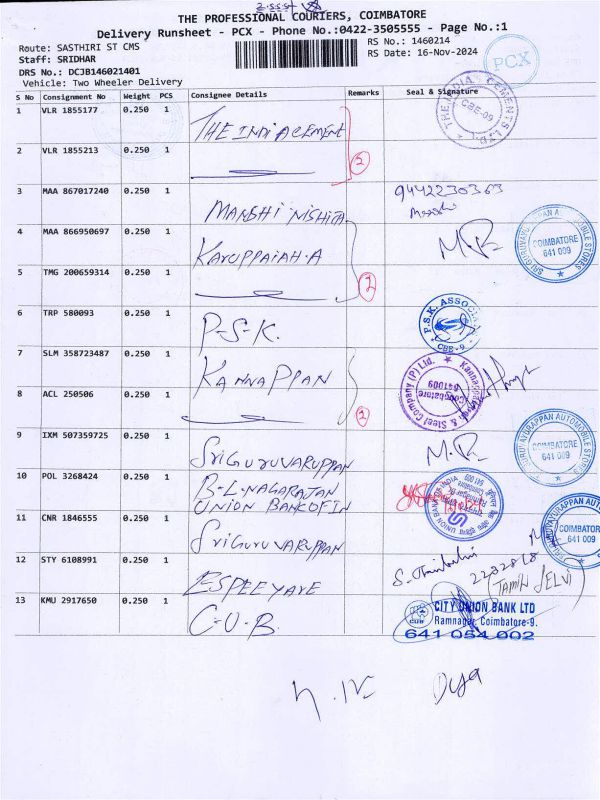 THE PROFESSIONAL COURIERS, COIMBATORE
Delivery Runsheet - PCX - Phone No.:0422-3505555 - Page No.:1
Route: SASTHIRI ST CMS
Staff: SRIDHAR
DRS No.: DCJB146021401
Vehicle: Two Wheeler Delivery
RS No.: 1460214
RS Date: 16-Nov-2024
PCX
S No Consignment No Weight PCS Consignee Details Remarks Seal & Signature
1 VLR 1855177 0.250 1 THE INDIACEMENT
CBE-09
2 VLR 1855213 0.250 1
2
3 MAA 867017240 0.250 1 MANSHI NISHITA 9442230363
4 MAA 866950697 0.250 1 KARUPPAIAH.A M.R
COIMBATORE
641 009
5 TMG 200659314 0.250 1
6 TRP 580093 0.250 1 P-S-K.
P.S.K. ASSOCI
CBE-9
7 SLM 358723487 0.250 1 KANNAPPAN
& Steel Company (P) Ltd.
Coimbatore
641009
8 ACL 250506 0.250 1
9 IXM 507359725 0.250 1 SRIGURUVARUPPAN M.R
GURUVAYURAPPAN AUTOMOBILE STORES
COIMBATORE
641 009
10 POL 3268424 0.250 1 B-L-NAGARAJAN
UNION BANKOFIN
UNION BANK OF INDIA
11 CNR 1846555 0.250 1 SRIGURUVARUPPAN
COIMBATORE
641 009
12 STY 6108991 0.250 1 ESPEEYAYE
(TAMIL SELVI)
13 KMU 2917650 0.250 1 C-U-B.
CUB
CITY UNION BANK LTD
Ramnagar, Coimbatore-9.
641 054 002